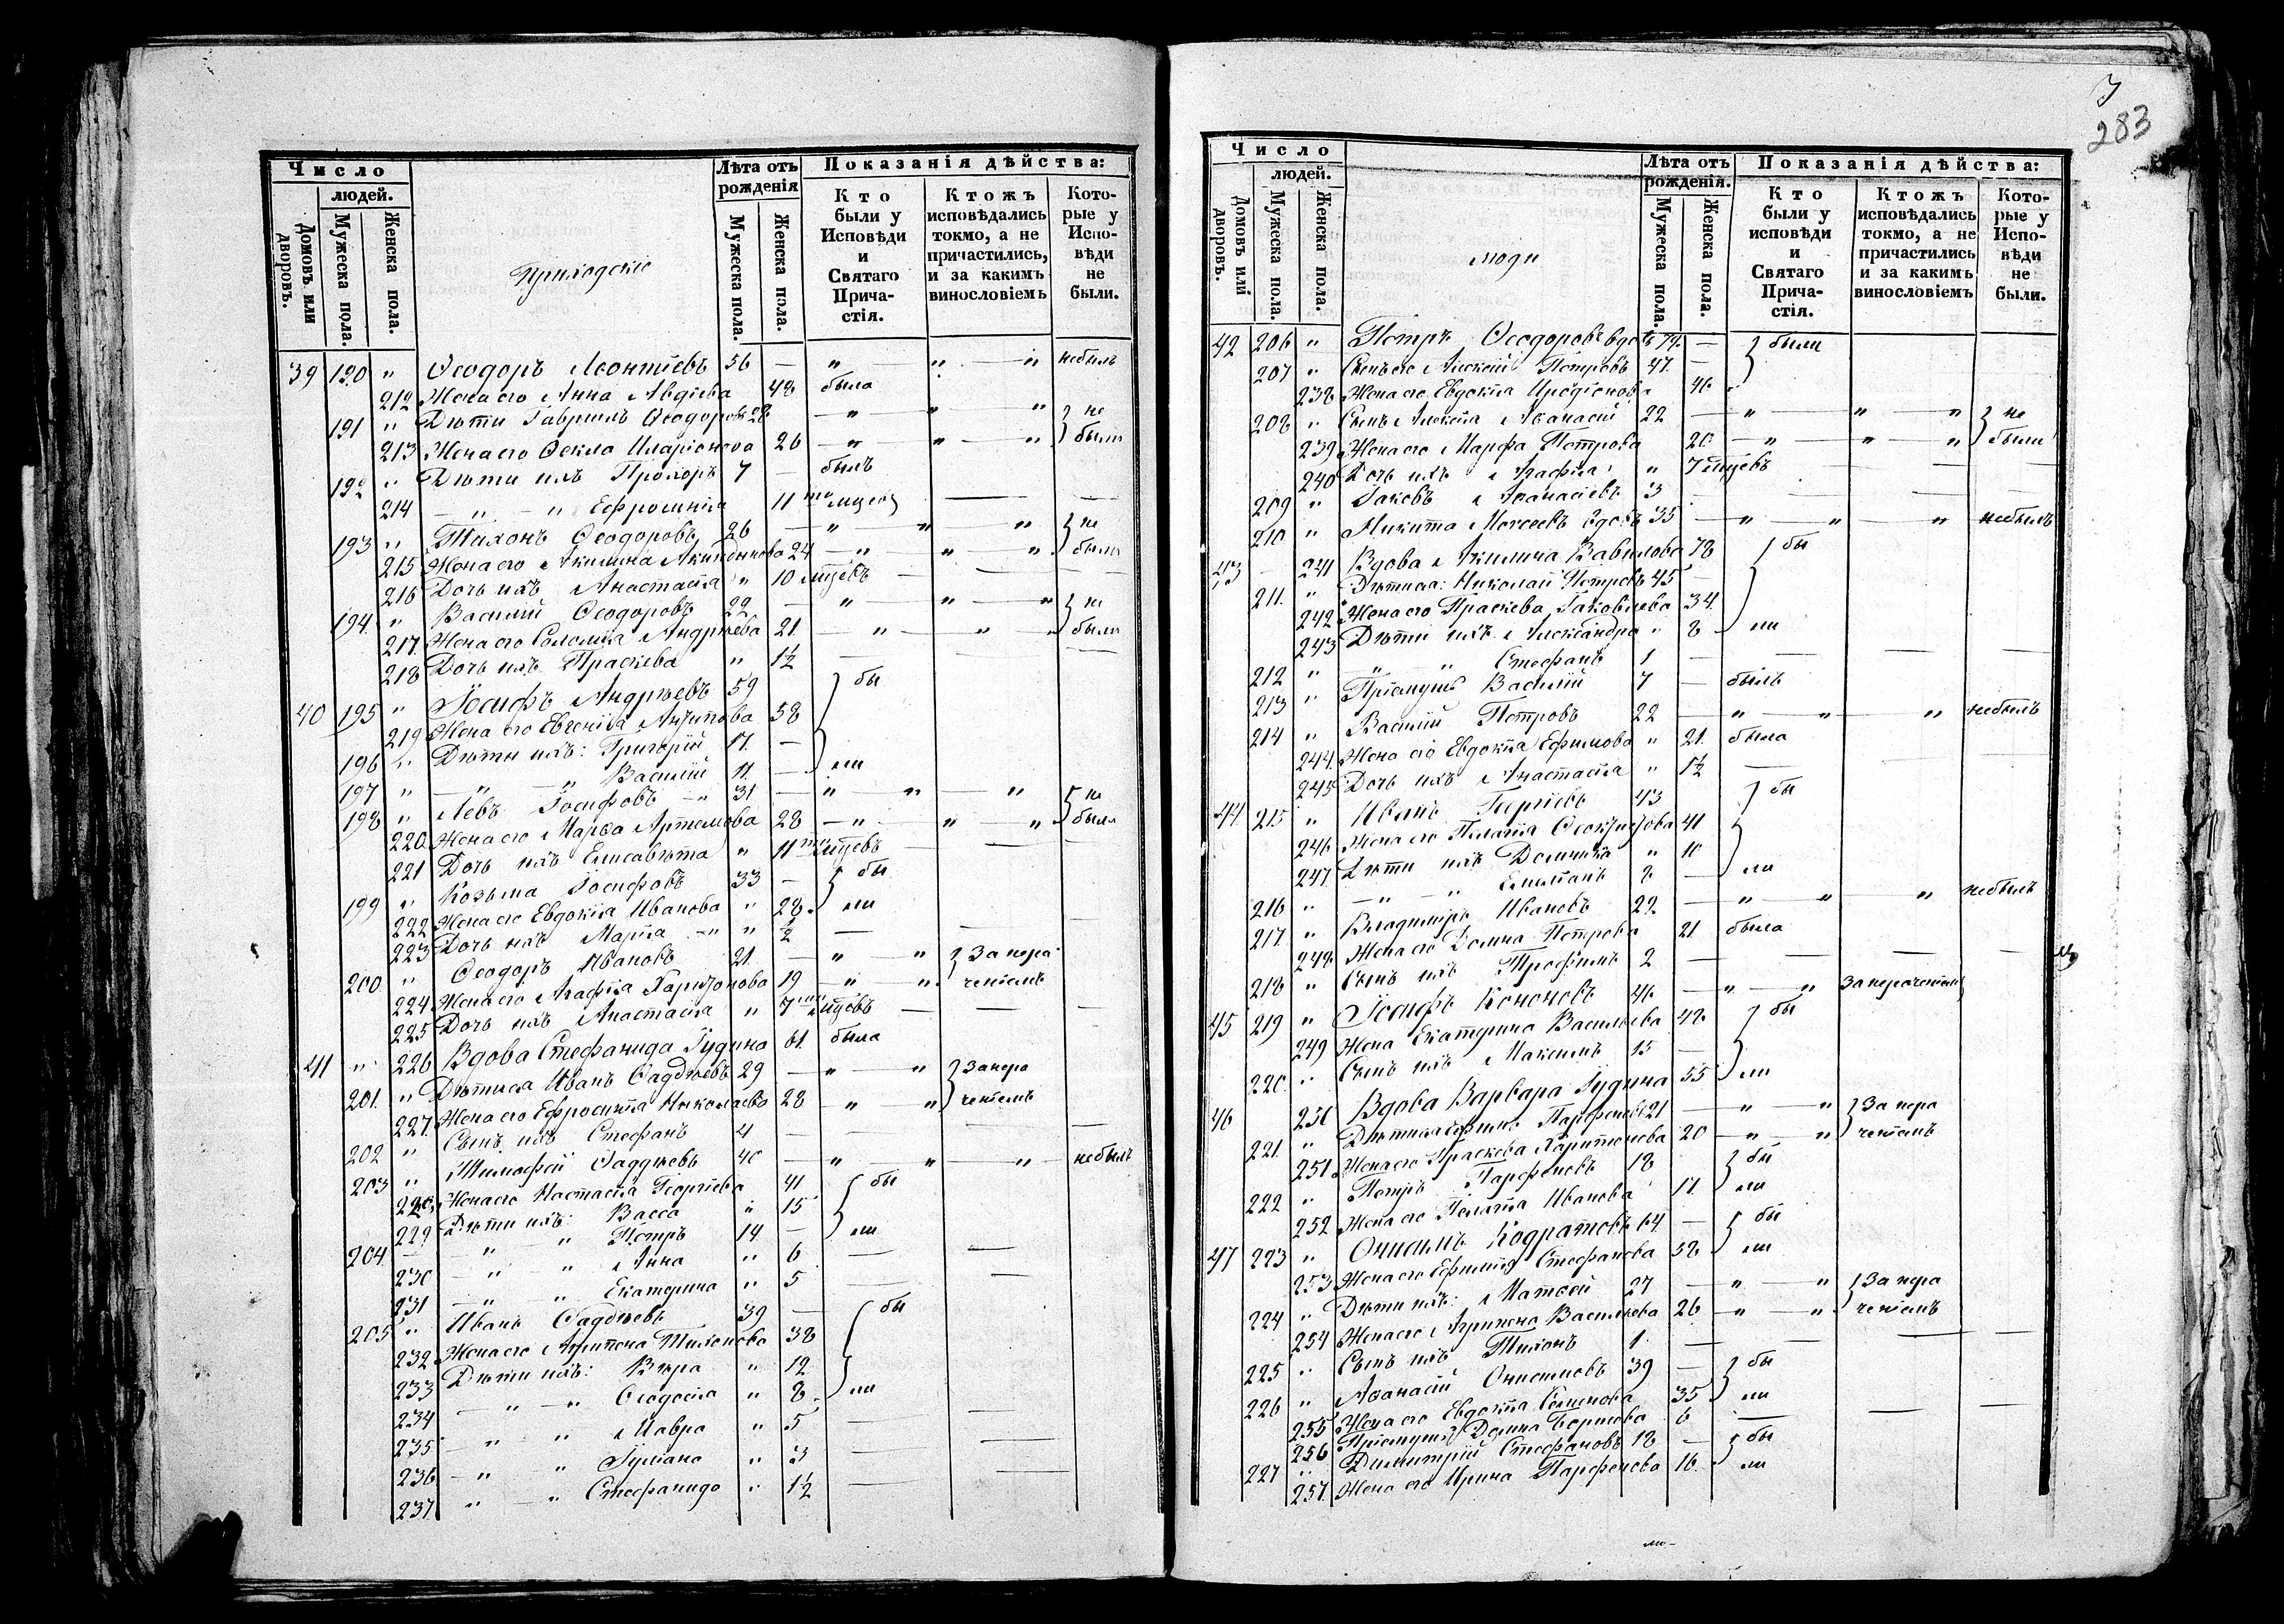 3
283
Число
людей.
Домовъ или дворовъ.
Мужеска пола.
Женска пола.
Приходскіе
Лѣта отъ рожденія
Мужеска пола.
Женска пола.
Показанія дѣйства:
Кто были у Исповѣди и Святаго Прича-стія.
Ктожъ исповѣдались токмо, а не причастились, и за какимъ винословіемъ
Кото-рые у Испо-вѣди не были.
39 190 " Ѳеодоръ Леонтіевъ 56 — " " — " небылъ
212 Жена его Анна Авдіева 48 была
191 " Дѣти Гавріилъ Ѳеодоровъ 28 — " " " } не
213 Жена его Ѳекла Иларіонова 26 — " " — " были
192 " Дѣти ихъ Прохоръ 7 — былъ
214 — " — " Ефросинія 11
193 " Тихонъ Ѳеодоровъ 26 — " " " } не
215 Жена его Акилина Акиндинова 24 — " " " были
216 Дочь ихъ Анастасія " 10 мѣсецевъ
194 " Василій Ѳеодоровъ 22 — " — " — " } не
217 Жена его Соломія Андрѣева 21 — " — " " были
218 Дочь ихъ Праскева " 1½
40 195 " Іосифъ Андрѣевъ 59 } бы
219 Жена его Евгенія Антипова 58
196 " Дѣти ихъ: Григорій 17 —
197 " — " — " Василій 11 — ли
198 " Левъ Іосифовъ — " 31 — " " — " } не
220 Жена его Марѳа Артемова 28 — " — " " были
221 Дочь ихъ Елисавета " 11
199 " Козьма Іосифовъ 33 — } бы
222 Жена его Евдокія Иванова " 28 ли
223 Дочь ихъ Марія — " " ½ —
200 " Ѳеодоръ Ивановъ 21 — " " } За нера
224 Жена его Агафія Харитонова 19 — " " ченіемъ
225 Дочь ихъ Анастасія " 7
41 " 226 Вдова Стефанида Гудина 61 была
201 " Дѣти ея Иванъ Ѳаддѣевъ 29 — " — " } За нера
227 Жена его Ефросинія Николаева 28 " " ченіемъ
202 " Сынъ ихъ Стефанъ 4 —
203 " Тимофей Ѳаддѣевъ 40 — " — " — " — небылъ
228 Жена его Настасія Георгіева 41 } бы
229 Дѣти ихъ: Васса " 15
204 — " " Петръ 14 — ли
230 — " " Анна " 6
231 — " " Екатерина " 5
205 " Иванъ Ѳаддѣевъ 39 — } бы
232 Жена его Агрипена Тихонова 38
233 Дѣти ихъ: Вѣра " 12
234 — " — " Ѳеодосія " 8 ли
235 — " " Мавра " 5
236 — " — " Іуліана " 3
237 " — " Стефанида " 1½
Число
людей.
Домовъ или дворовъ.
Мужеска пола.
Женска пола.
люди
Лѣта отъ рожденія.
Мужеска пола.
Женска пола.
Показанія дѣйства:
Кто были у исповѣди и Святаго Прича-стія.
Ктожъ исповѣдались токмо, а не причастились и за какимъ винословіемъ
Кото-рые у Испо-вѣди не были.
42 206 " Петръ Ѳеодоровъ вдовъ 72 — } были
207 " Сынъ его Алексій Петровъ 47 —
238 Жена его Евдокія Иродіонова 46
208 " Сынъ Алексія Аѳанасій 22 — " — " — " } не
239 Жена его Марфа Петрова 20 — " — " " были
240 Дочь ихъ Агафія " 7 мѣсецевъ
209 " Іаковъ Аѳанасіевъ 3
210 " Никита Моисеевъ вдовъ 35 — " " — " небылъ
43 — 241 Вдова Акилина Вавилова 78 } бы
211 " Дѣти ея: Николай Петровъ 45 —
242 Жена его Праскева Іаковлева 34
243 Дѣти ихъ Александра " 8 ли
212 " " " Стефанъ 1 —
213 " Пріемушъ Василій 7 — былъ
214 " Василій Петровъ 22 — " — " — " небылъ
244 Жена его Евдокія Ефимова " 21 была
245 Дочь ихъ Анастасія " 1½ —
44 215 " Иванъ Георгіевъ 43 } бы
246 Жена его Пелагія Ѳеоктистова 41
247 Дѣти ихъ Домникія " 10
216 " — " — " Емиліанъ 8 — ли
217 " Владиміръ Ивановъ 22 — " — " — " небылъ
248 Жена его Домна Петрова 21 была
218 " Сынъ ихъ Трофимъ 2 —
45 219 " Іосифъ Кононовъ 46 — " — " За нераченіемъ
249 Жена Екатерина Васильева 42 } бы
220 " Сынъ ихъ Максимъ 15 —
46 250 Вдова Варвара Гудина 55 ли
221 " Дѣти ея Ефимъ Парфеновъ 21 — " — " } За нера
251 Жена его Праскева Харитонова 20 — " " ченіемъ
222 " Петръ Парфеновъ 18 } бы
252 Жена его Пелагія Иванова 17 ли
47 223 " Онисимъ Кодратовъ 64 — } бы
253 Жена его Ефимія Стефанова 58 ли
224 " Дѣти ихъ: Матвей 27 — " — " } За нера
254 Жена его Агрипена Васильева 26 — " — " ченіемъ
225 " Сынъ ихъ Тихонъ 1 —
226 " Аѳанасій Онисимовъ 39 — } бы
255 Жена его Евдокія Семенова 35 ли
256 Пріемушъ Домна 6
227 " Димитрій Стефановъ 18 — } бы
257 Жена его Ирина Парфенова 16 ли